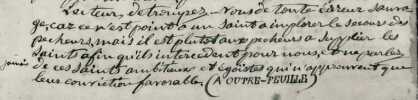 lecteur, détrompez-vous de toute erreur sauva
ge, car ce n'est point à un saint à implorer le secours des
pecheurs, mais il est plutôt aux pecheurs à supplier les
saints afin qu'ils intercèdent pour nous; parlez
jamais de ces saints ambitieux et Égoïstes qui n'approuvent que
leur conviction favorable. (A OUTRE-FEUILLE)